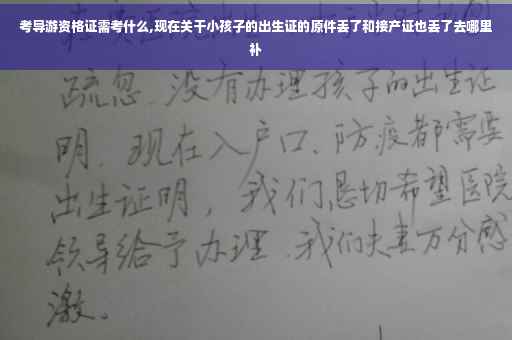 考导游资格证需考什么,现在关于小孩子的出生证的原件丢了和接产证也丢了去哪里
补
疏忽.没有办理孩子的出生证
明.现在入户口、防疫都需要
出生证明，我们恳切希望医院
领导给予办理.我们夫妻万分感
激。